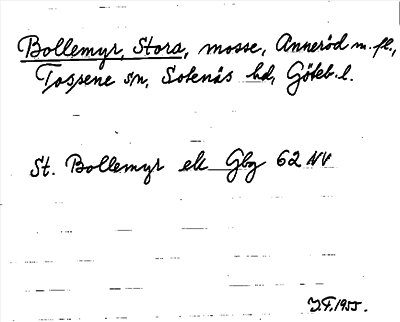 Bollemyr, Stora, mosse, Anneröd m.fl.,
Tossene sn, Sotenäs hd, Göteb.l.
St. Bollemyr ek Gbg 62 NV
J.F. 1955.